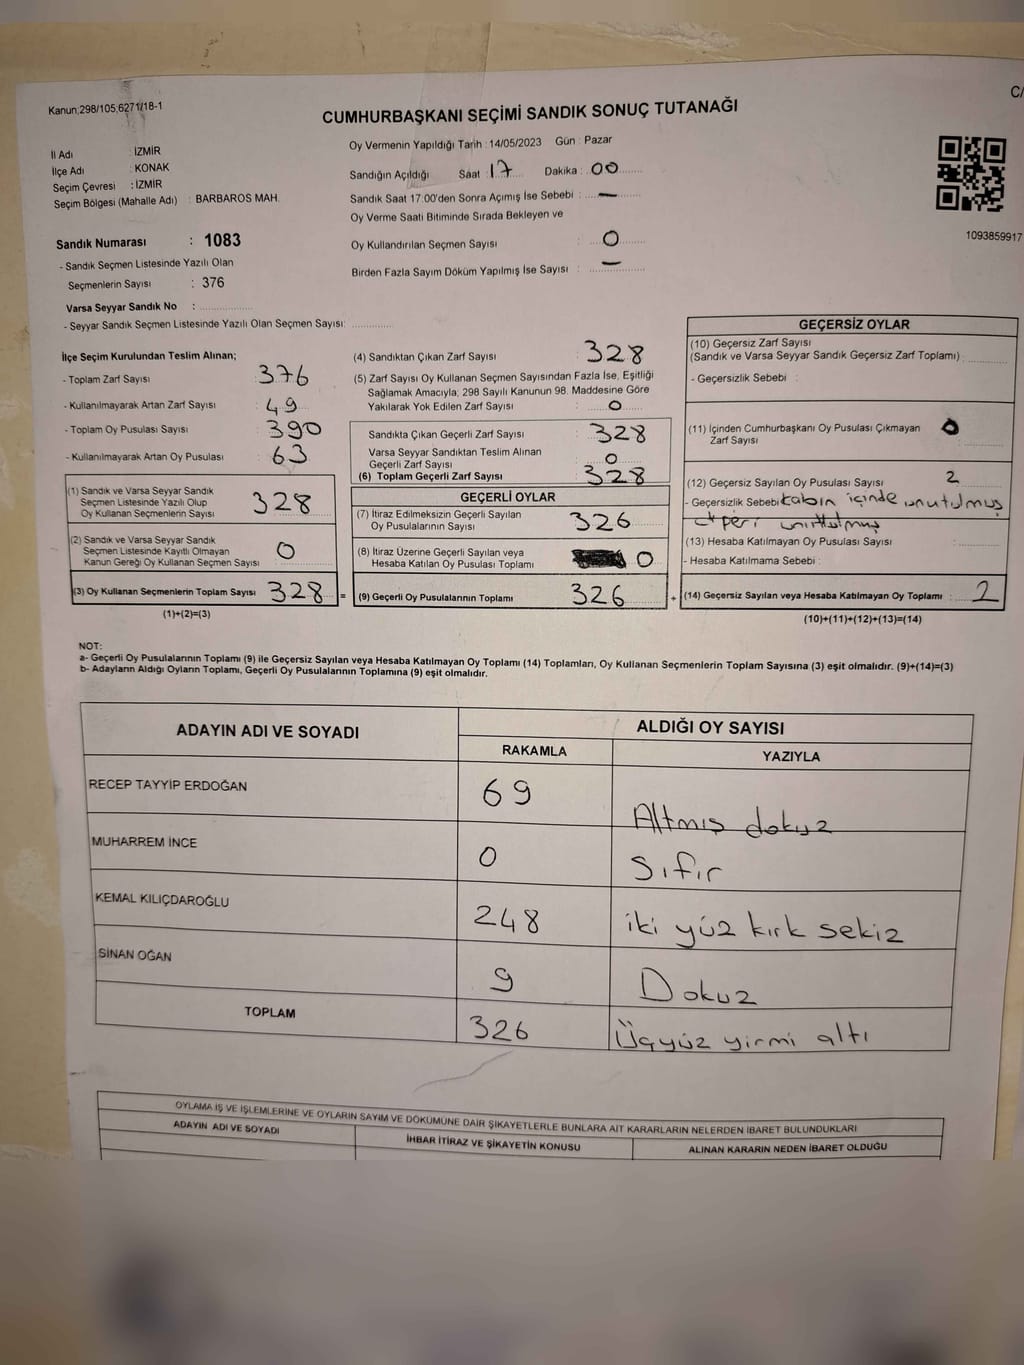 Kanun;298/105,6271/18-1
C/
CUMHURBAŞKANI SEÇİMİ SANDIK SONUÇ TUTANAĞI
İl Adı : İZMİR
İlçe Adı : KONAK
Seçim Çevresi : İZMİR
Seçim Bölgesi (Mahalle Adı) : BARBAROS MAH.
Oy Vermenin Yapıldığı Tarih : 14/05/2023 Gün : Pazar
Sandığın Açıldığı Saat : 17 Dakika : 00
Sandık Saat 17:00'den Sonra Açımış İse Sebebi : —
Oy Verme Saati Bitiminde Sırada Bekleyen ve
Oy Kullandırılan Seçmen Sayısı : 0
Birden Fazla Sayım Döküm Yapılmış İse Sayısı : —
1093859917
Sandık Numarası : 1083
- Sandık Seçmen Listesinde Yazılı Olan
Seçmenlerin Sayısı : 376
Varsa Seyyar Sandık No :
- Seyyar Sandık Seçmen Listesinde Yazılı Olan Seçmen Sayısı:
İlçe Seçim Kurulundan Teslim Alınan;
- Toplam Zarf Sayısı : 376
- Kullanılmayarak Artan Zarf Sayısı : 49
- Toplam Oy Pusulası Sayısı : 390
- Kullanılmayarak Artan Oy Pusulası : 63
(1) Sandık ve Varsa Seyyar Sandık
Seçmen Listesinde Yazılı Olup
Oy Kullanan Seçmenlerin Sayısı : 328
(2) Sandık ve Varsa Seyyar Sandık
Seçmen Listesinde Kayıtlı Olmayan
Kanun Gereği Oy Kullanan Seçmen Sayısı : 0
(3) Oy Kullanan Seçmenlerin Toplam Sayısı : 328 =
(1)+(2)=(3)
(4) Sandıktan Çıkan Zarf Sayısı : 328
(5) Zarf Sayısı Oy Kullanan Seçmen Sayısından Fazla İse, Eşitliği
Sağlamak Amacıyla; 298 Sayılı Kanunun 98. Maddesine Göre
Yakılarak Yok Edilen Zarf Sayısı : 0
Sandıkta Çıkan Geçerli Zarf Sayısı : 328
Varsa Seyyar Sandıktan Teslim Alınan
Geçerli Zarf Sayısı : 0
(6) Toplam Geçerli Zarf Sayısı : 328
GEÇERLİ OYLAR
(7) İtiraz Edilmeksizin Geçerli Sayılan
Oy Pusulalarının Sayısı : 326
(8) İtiraz Üzerine Geçerli Sayılan veya
Hesaba Katılan Oy Pusulası Toplamı : 0
(9) Geçerli Oy Pusulalarının Toplamı : 326 +
GEÇERSİZ OYLAR
(10) Geçersiz Zarf Sayısı
(Sandık ve Varsa Seyyar Sandık Geçersiz Zarf Toplamı) :
- Geçersizlik Sebebi :
(11) İçinden Cumhurbaşkanı Oy Pusulası Çıkmayan
Zarf Sayısı : 0
(12) Geçersiz Sayılan Oy Pusulası Sayısı : 2
- Geçersizlik Sebebi kabin içinde unutulmuş
(13) Hesaba Katılmayan Oy Pusulası Sayısı :
- Hesaba Katılmama Sebebi :
(14) Geçersiz Sayılan veya Hesaba Katılmayan Oy Toplamı : 2
(10)+(11)+(12)+(13)=(14)
NOT:
a- Geçerli Oy Pusulalarının Toplamı (9) ile Geçersiz Sayılan veya Hesaba Katılmayan Oy Toplamı (14) Toplamları, Oy Kullanan Seçmenlerin Toplam Sayısına (3) eşit olmalıdır. (9)+(14)=(3)
b- Adayların Aldığı Oyların Toplamı, Geçerli Oy Pusulalarının Toplamına (9) eşit olmalıdır.
ADAYIN ADI VE SOYADI ALDIĞI OY SAYISI
RAKAMLA YAZIYLA
RECEP TAYYİP ERDOĞAN 69 Altmış dokuz
MUHARREM İNCE 0 Sıfır
KEMAL KILIÇDAROĞLU 248 iki yüz kırk sekiz
SİNAN OĞAN 9 Dokuz
TOPLAM 326 Üçyüz yirmi altı
OYLAMA İŞ VE İŞLEMLERİNE VE OYLARIN SAYIM VE DÖKÜMÜNE DAİR ŞİKAYETLERLE BUNLARA AİT KARARLARIN NELERDEN İBARET BULUNDUKLARI
ADAYIN ADI VE SOYADI İHBAR İTİRAZ VE ŞİKAYETİN KONUSU ALINAN KARARIN NEDEN İBARET OLDUĞU